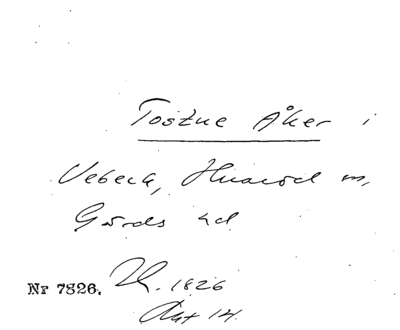 Tostne Åker i
Vebeck, Huaröd m,
Gärds hd
Nr 7826. Lh. 1826
Akt 14.